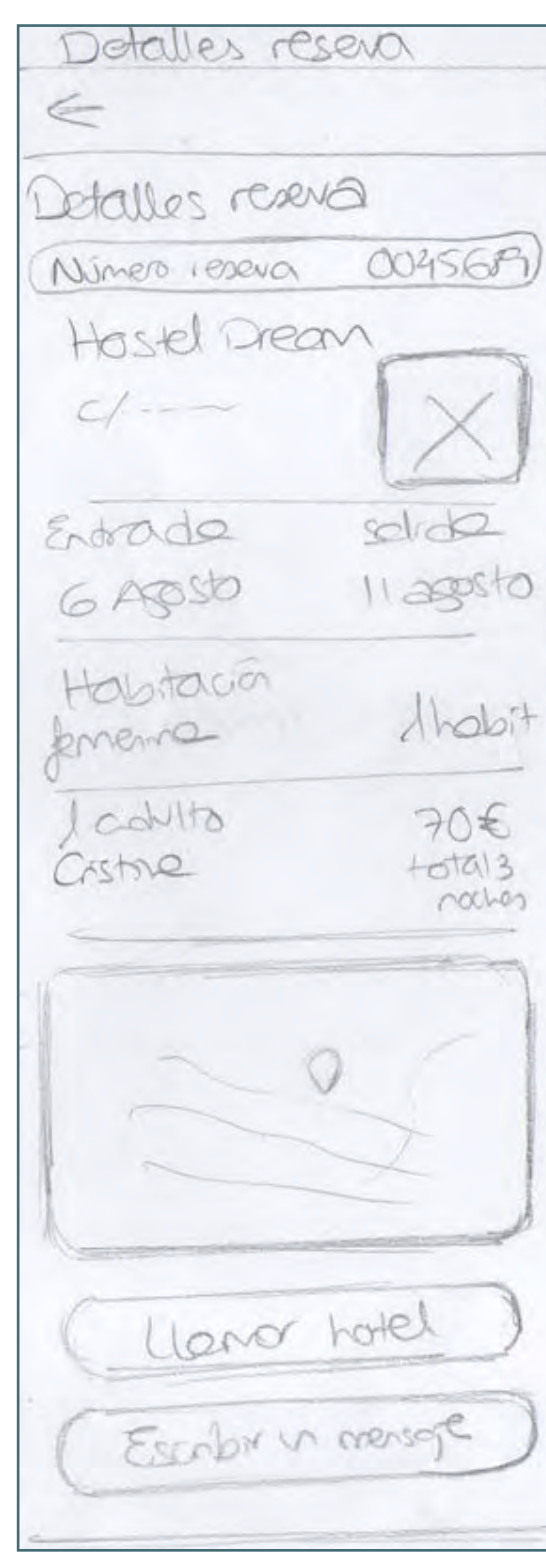 Detalles reseva
Detalles reseva
Número reseva
Hostel Dream
c/
Entrada salida
6 Agosto 11 agosto
Habitación
femenina 1 habit
1 adulto 70€
Cristina total 3
noches
Llamar hotel
Escribir un mensaje